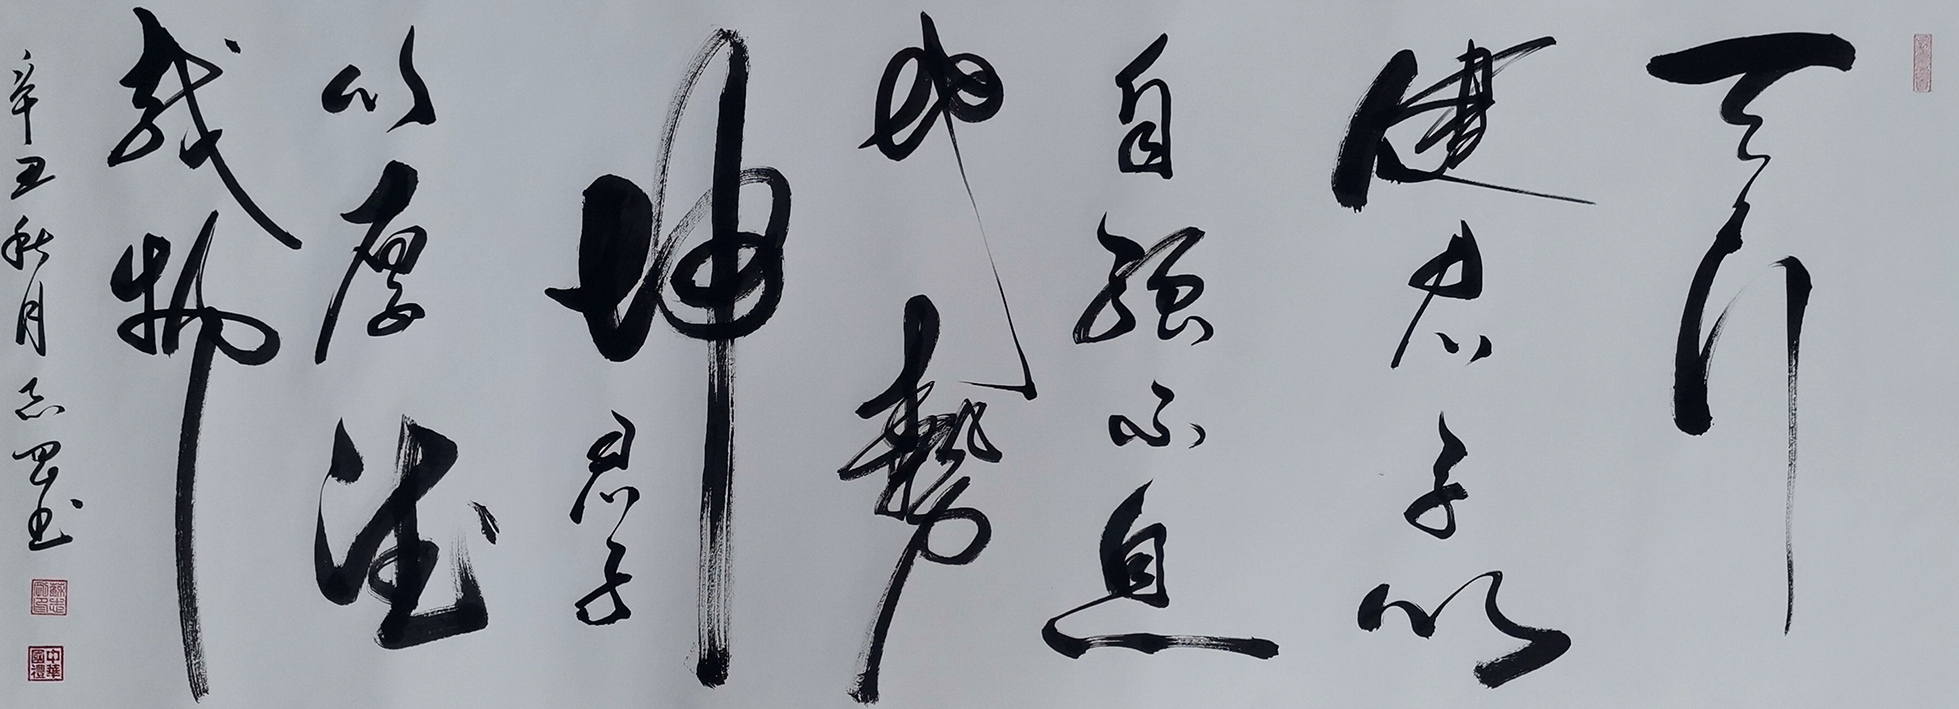 天行
健君子以
自强不息
地势
坤君子
以厚德
载物
辛丑秋月志罡书
中華國禮